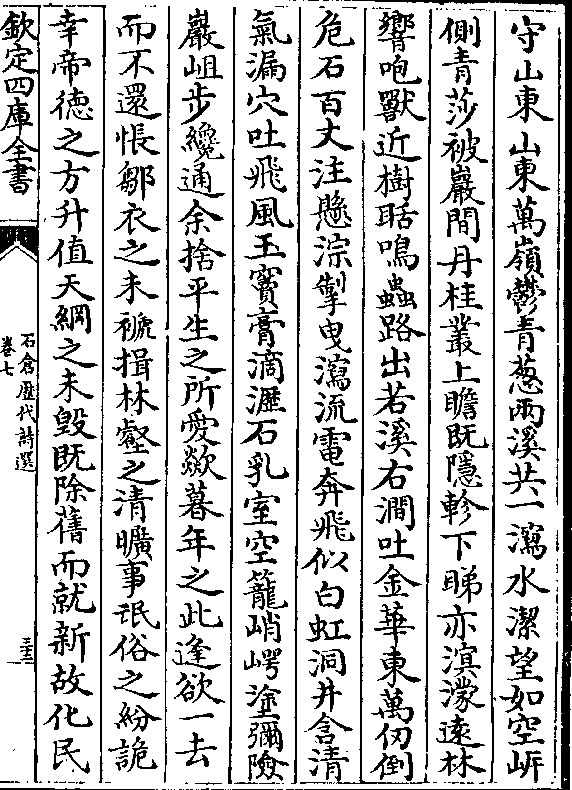 守山東山東萬嶺鬱青葱兩溪共一瀉水潔望如空岍
側青莎被巖間丹桂叢上瞻既隱軫下睇亦溟濛遠林
響咆獸近樹聒鳴蟲路出若溪右澗吐金華東萬仞倒
危石百丈注懸淙掣曳瀉流電奔飛似白虹洞井含清
氣漏穴吐飛風玉竇膏滴瀝石乳室空籠峭崿塗彌險
巖岨步纔通余捨平生之所愛欻暮年之此逢欲一去
而不還悵鄒衣之未褫揖林壑之清曠事氓俗之紛詭
幸帝德之方升值天綱之未毀既除舊而就新故化民
欽定四庫全書
石倉歴代詩選
卷七
三十三